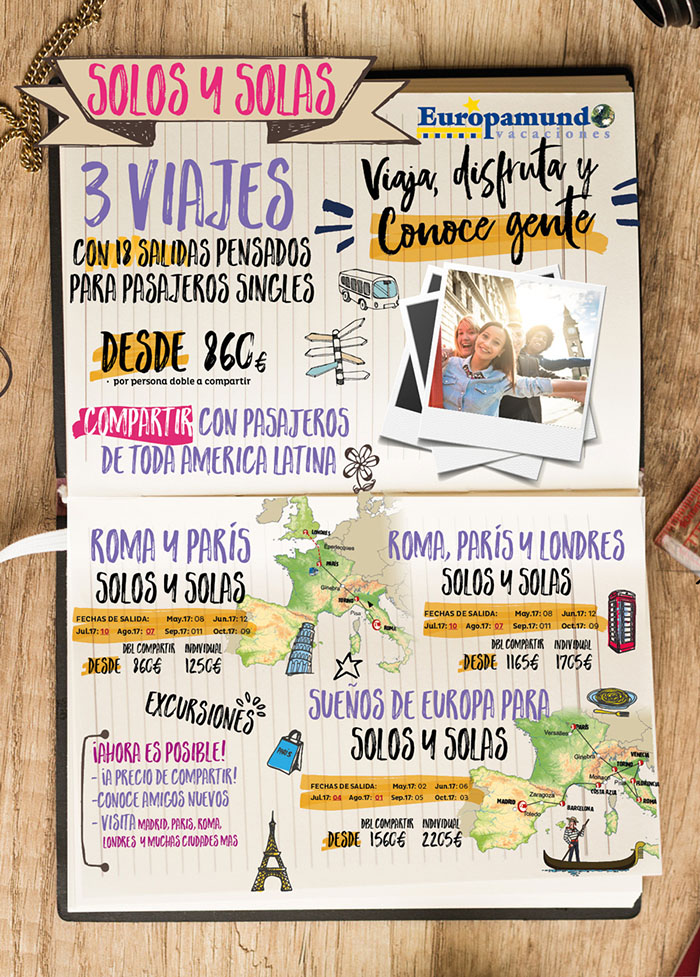 SOLOS Y SOLAS
Europamundo
vacaciones
3 VIAJES
CON 18 SALIDAS PENSADOS
PARA PASAJEROS SINGLES
Viaja, disfruta y
Conoce gente
DESDE 860€
· por persona doble a compartir
COMPARTIR CON PASAJEROS
DE TODA AMERICA LATINA
ROMA Y PARÍS
SOLOS Y SOLAS
FECHAS DE SALIDA: May.17: 08 Jun.17: 12
Jul.17: 10 Ago.17: 07 Sep.17: 011 Oct.17: 09
DBL COMPARTIR INDIVIDUAL
DESDE 860€ 1250€
LONDRES
PARÍS
Ginebra
TORINO
Pisa
ROMA
ROMA, PARÍS Y LONDRES
SOLOS Y SOLAS
FECHAS DE SALIDA: May.17: 08 Jun.17: 12
Jul.17: 10 Ago.17: 07 Sep.17: 011 Oct.17: 09
DBL COMPARTIR INDIVIDUAL
DESDE 1165€ 1705€
EXCURSIONES
¡AHORA ES POSIBLE!
- ¡A PRECIO DE COMPARTIR!
- CONOCE AMIGOS NUEVOS
- VISITA MADRID, PARIS, ROMA,
LONDRES Y MUCHAS CIUDADES MAS
PARIS
SUEÑOS DE EUROPA PARA
SOLOS Y SOLAS
FECHAS DE SALIDA: May.17: 02 Jun.17: 06
Jul.17: 04 Ago.17: 01 Sep.17: 05 Oct.17: 03
DBL COMPARTIR INDIVIDUAL
DESDE 1560€ 2205€
PARÍS
Versalles
Ginebra
VENECIA
TORINO
Monaco
FLORENCIA
Pisa
COSTA AZUL
ROMA
Zaragoza
MADRID
BARCELONA
Toledo